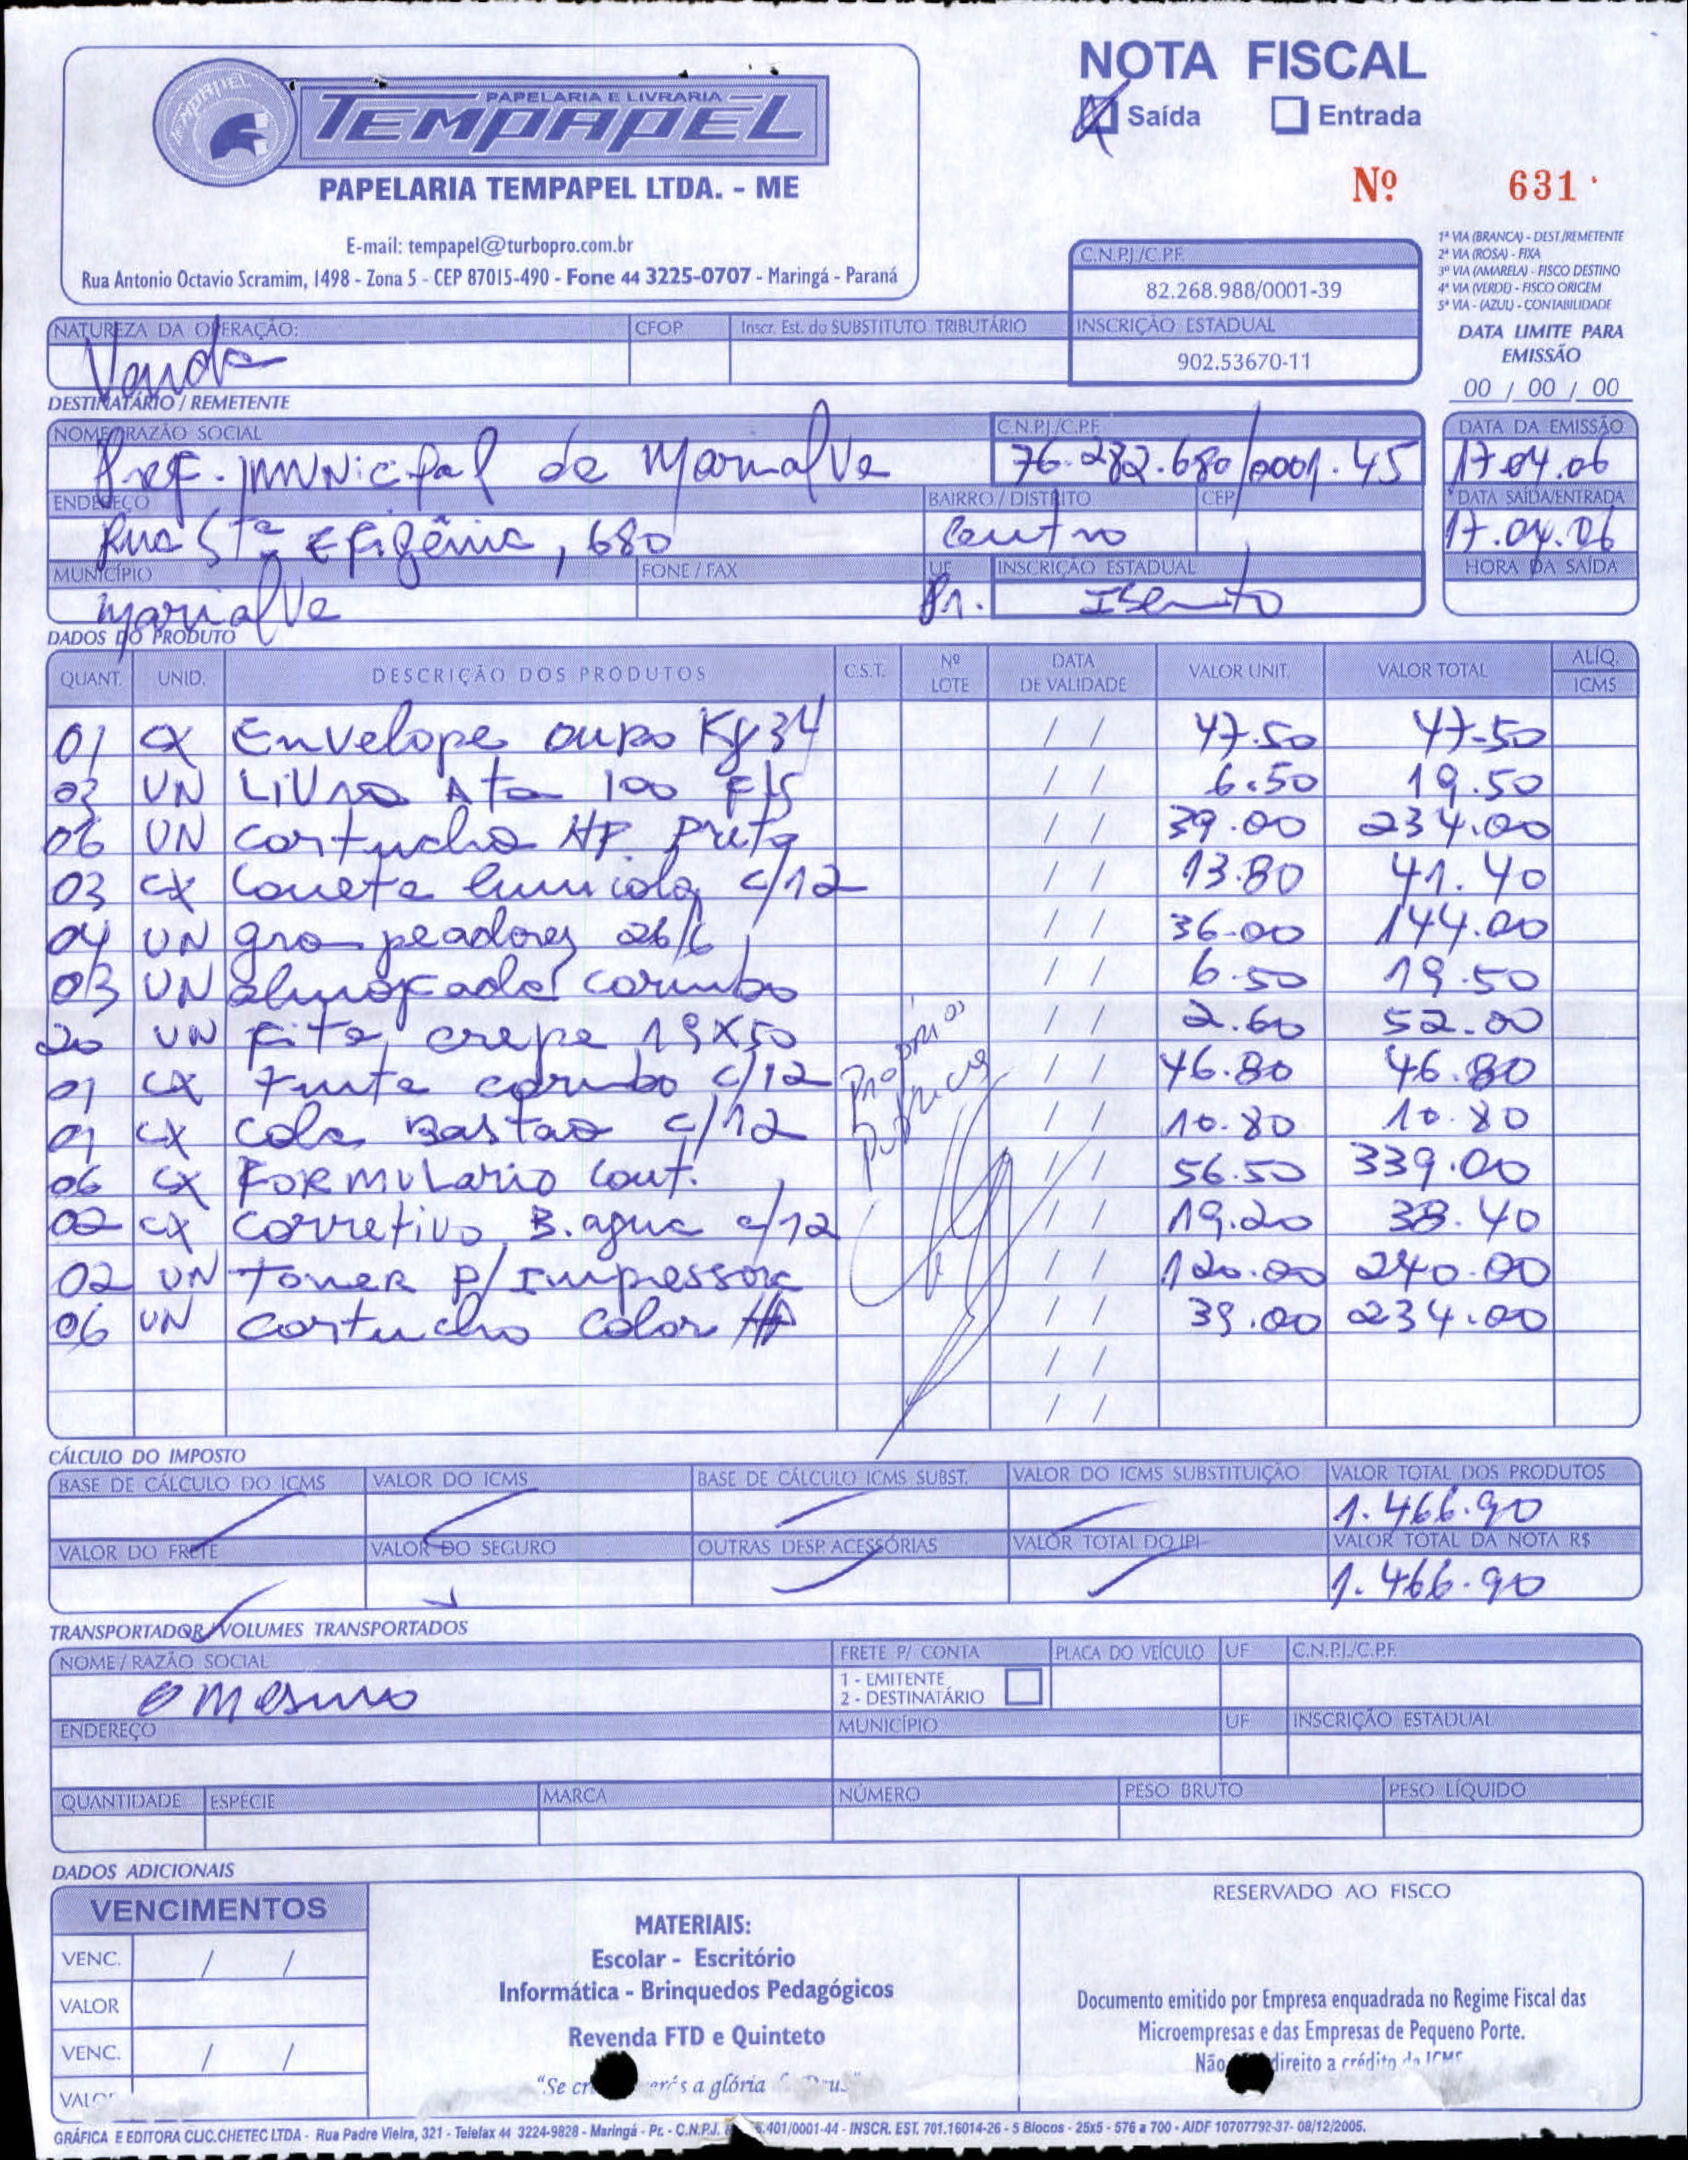 TEMPAPEL
PAPELARIA E LIVRARIA
TEMPAPEL
PAPELARIA TEMPAPEL LTDA. - ME
E-mail: tempapel@turbopro.com.br
Rua Antonio Octavio Scramim, 1498 - Zona 5 - CEP 87015-490 - Fone 44 3225-0707 - Maringá - Paraná
NOTA FISCAL
Saída Entrada
Nº 631
1ª VIA (BRANCA) - DEST./REMETENTE
2ª VIA (ROSA) - FIXA
3º VIA (AMARELA) - FISCO DESTINO
4ª VIA (VERDE) - FISCO ORIGEM
5ª VIA - (AZUL) - CONTABILIDADE
DATA LIMITE PARA
EMISSÃO
00 / 00 / 00
C.N.P.J./C.P.F.
82.268.988/0001-39
NATUREZA DA OPERAÇÃO: CFOP Inscr. Est. do SUBSTITUTO TRIBUTÁRIO INSCRIÇÃO ESTADUAL
Venda 902.53670-11
DESTINATÁRIO / REMETENTE
NOME/RAZÃO SOCIAL C.N.P.J./C.P.F. DATA DA EMISSÃO
Pref. Municipal de Marialva 76.282.680/0001.45 17.04.06
ENDEREÇO BAIRRO / DISTRITO CEP DATA SAÍDA/ENTRADA
Rua Sta Efigênia, 680 Centro 17.04.06
MUNICÍPIO FONE / FAX UF INSCRIÇÃO ESTADUAL HORA DA SAÍDA
Marialva Pr. Isento
DADOS DO PRODUTO
QUANT. UNID. DESCRIÇÃO DOS PRODUTOS C.S.T. Nº LOTE DATA DE VALIDADE VALOR UNIT. VALOR TOTAL ALÍQ. ICMS
01 CX Envelope ouro Kg 34 / / 47.50 47.50
03 UN Livro Ata 100 Fls / / 6.50 19.50
06 UN Cartucho HP. Preto / / 39.00 234.00
03 CX Caneta lumicolor c/12 / / 13.80 41.40
04 UN grampeadores 26/6 / / 36.00 144.00
03 UN almofada carimbo / / 6.50 19.50
20 UN Fita crepe 19X50 / / 2.60 52.00
01 CX Tinta carimbo c/12 / / 46.80 46.80
01 CX Cola Bastao c/12 / / 10.80 10.80
06 CX Formulario Cont. / / 56.50 339.00
02 CX Corretivo B. agua c/12 / / 19.20 38.40
02 UN Toner p/Impressora / / 120.00 240.00
06 UN Cartucho Color HP / / 39.00 234.00
/ /
/ /
Próprios
Públicos
CÁLCULO DO IMPOSTO
BASE DE CÁLCULO DO ICMS VALOR DO ICMS BASE DE CÁLCULO ICMS SUBST. VALOR DO ICMS SUBSTITUIÇÃO VALOR TOTAL DOS PRODUTOS
1.466.90
VALOR DO FRETE VALOR DO SEGURO OUTRAS DESP. ACESSÓRIAS VALOR TOTAL DO IPI VALOR TOTAL DA NOTA R$
1.466.90
TRANSPORTADOR/VOLUMES TRANSPORTADOS
NOME / RAZÃO SOCIAL FRETE P/ CONTA PLACA DO VEÍCULO UF C.N.P.J./C.P.F.
o mesmo 1 - EMITENTE
2 - DESTINATÁRIO
ENDEREÇO MUNICÍPIO UF INSCRIÇÃO ESTADUAL
QUANTIDADE ESPÉCIE MARCA NÚMERO PESO BRUTO PESO LÍQUIDO
DADOS ADICIONAIS
VENCIMENTOS
VENC. / /
VALOR
VENC. / /
VALO
MATERIAIS:
Escolar - Escritório
Informática - Brinquedos Pedagógicos
Revenda FTD e Quinteto
"Se a glória
RESERVADO AO FISCO
Documento emitido por Empresa enquadrada no Regime Fiscal das
Microempresas e das Empresas de Pequeno Porte.
Não direito a crédito de ICMS
GRÁFICA E EDITORA CLIC.CHETEC LTDA - Rua Padre Vieira, 321 - Telefax 44 3224-9828 - Maringá - Pr. - C.N.P.J. .401/0001-44 - INSCR. EST. 701.16014-26 - 5 Blocos - 25x5 - 576 a 700 - AIDF 10707792-37- 08/12/2005.